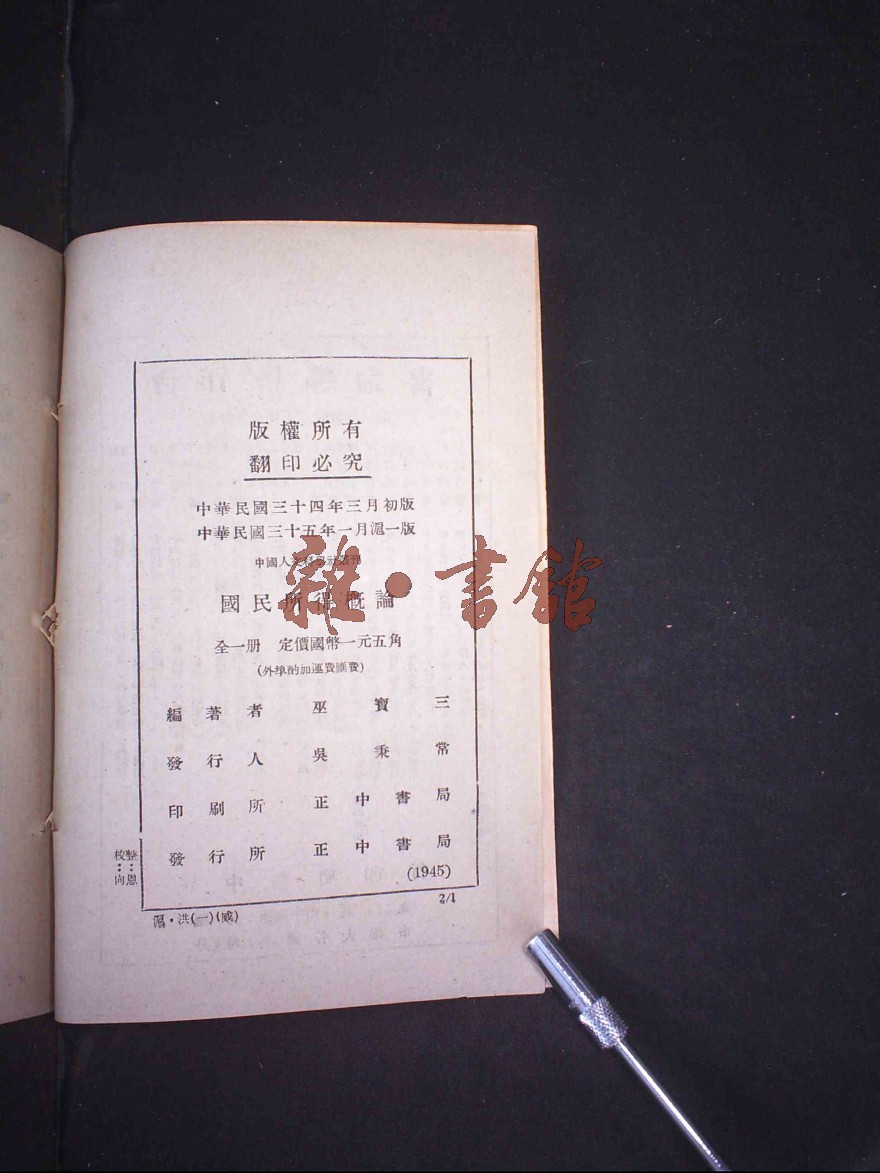 版權所有
翻印必究
中華民國三十四年三月初版
中華民國三十五年一月滬一版
中國人文科學社叢刊
國民所得概論
全一册 定價國幣一元五角
(外埠酌加運費匯費)
編著者 巫寶三
發行人 吳秉常
印刷所 正中書局
發行所 正中書局
(1945)
校整
：：
向恩
滬・洪(一)(威)
2/1
雜・書館